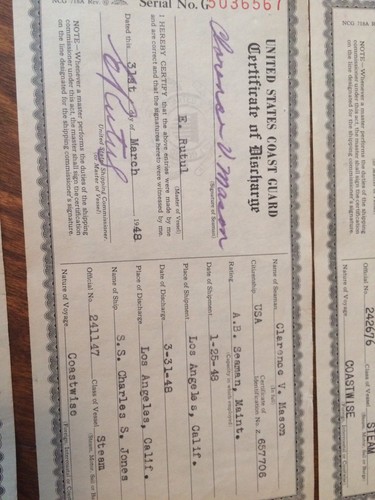 NCG 718A Rev.
Serial No. G5036567
UNITED STATES COAST GUARD
Certificate of Discharge
Clarence V. Mason
(Signature of Seaman)
I HEREBY CERTIFY that the above entries were made by me
and are correct and that the signatures hereto were witnessed by me
E. Rutul
(Master of Vessel)
Dated this 31st day of March 1948
E Rutul
United States Shipping Commissioner
(or Master of Vessel)
NOTE—Whenever a master performs the duties of the shipping
commissioner under this act, the master shall sign the certification
on the line designated for the shipping commissioner's signature.
Name of Seaman Clarence V. Mason
(In full)
Citizenship USA Certificate of Identification No. Z 657706
Rating A.B. Seaman, Maint.
(Capacity in which employed)
Date of Shipment 1-25-48
Place of Shipment Los Angeles, Calif.
Date of Discharge 3-31-48
Place of Discharge Los Angeles, Calif.
Name of Ship S.S. Charles S. Jones
Official No. 241147 Class of Vessel Steam
(Steam, Motor, Sail or Barge)
Nature of Voyage Coastwise
(Foreign, Intercoastal or Coastwise)
NCG 718A Rev.
NOTE—Whenever a master
commissioner under this act, the master
on the line designated for the shipping
Official No. 242676
Class of Vessel STEAM
Nature of Voyage COASTWISE